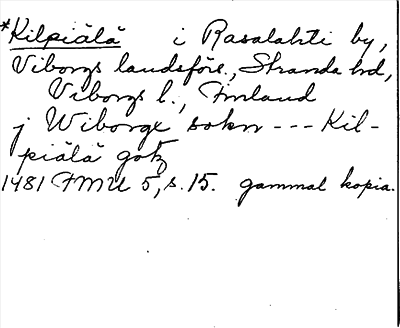 *Kilpiälä i Rasalahti by,
Viborgs landsförs., Stranda hd,
Viborgs l., Finland
j Wiborgx sokn --- Kil-
piälä götz
1481 FMU 5, s. 15. gammal kopia.